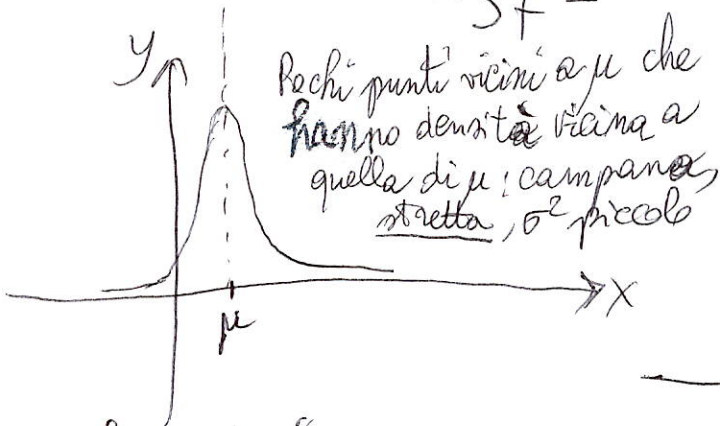 Y
Pochi punti vicini a μ che
hanno densità vicina a
quella di μ: campana
stretta, σ² piccolo
X
μ